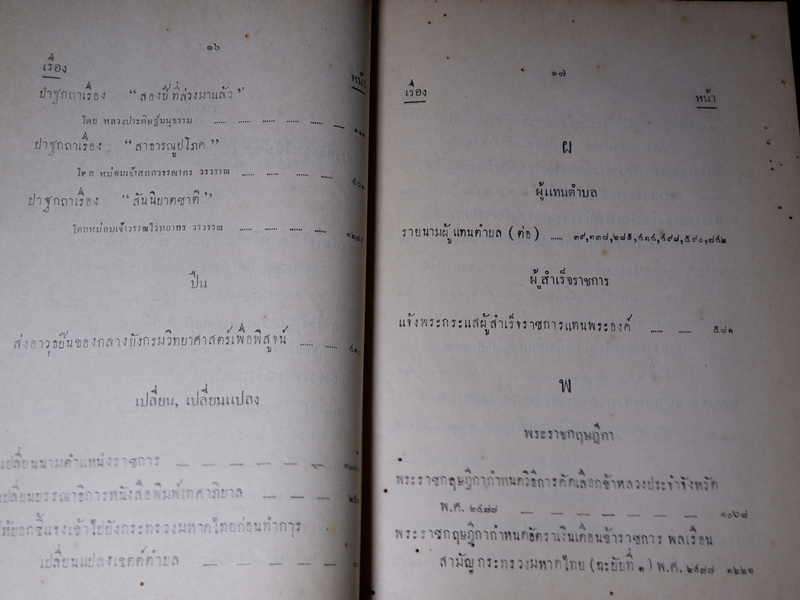 ๑๖
เรื่อง
หน้า
ปาฐกถาเรื่อง "สองปีที่ล่วงมาแล้ว"
โดย หลวงประดิษฐ์มนูธรรม ...... ...... ...... ......
ปาฐกถาเรื่อง "สาธารณูปโภค"
โดย หม่อมเจ้าสกลวรรณากร วรวรรณ ...... ...... ......
ปาฐกถาเรื่อง "สันนิบาตชาติ"
โดยหม่อมเจ้าวรรณไวทยากร วรวรรณ ...... ...... ......
ปืน
ส่งอาวุธปืนของกลางยังกรมวิทยาศาสตร์เพื่อพิสูจน์ ...... ......
เปลี่ยน, เปลี่ยนแปลง
เปลี่ยนนามตำแหน่งราชการ
เปลี่ยนบรรณาธิการหนังสือพิมพ์เทศาภิบาล
ให้บอกชี้แจงเข้าไปยังกระทรวงมหาดไทยก่อนทำการ
เปลี่ยนแปลงเขตต์ตำบล
๑๗
เรื่อง
หน้า
ผ
ผู้แทนตำบล
รายนามผู้แทนตำบล (ต่อ) ...... ๓๙,๑๓๗,๒๘๕,๔๑๔,๔๙๘,๕๙๐,๗๔๒
ผู้สำเร็จราชการ
แจ้งพระกระแสผู้สำเร็จราชการแทนพระองค์ ...... ...... ๕๘๑
พ
พระราชกฤษฎีกา
พระราชกฤษฎีกากำหนดวิธีการคัดเลือกข้าหลวงประจำจังหวัด
พ.ศ. ๒๔๗๗ ๑๐๖๘
พระราชกฤษฎีกากำหนดอัตราเงินเดือนข้าราชการ พลเรือน
สามัญ กระทรวงมหาดไทย (ฉะบับที่ ๑) พ.ศ. ๒๔๗๗ ๑๒๒๑